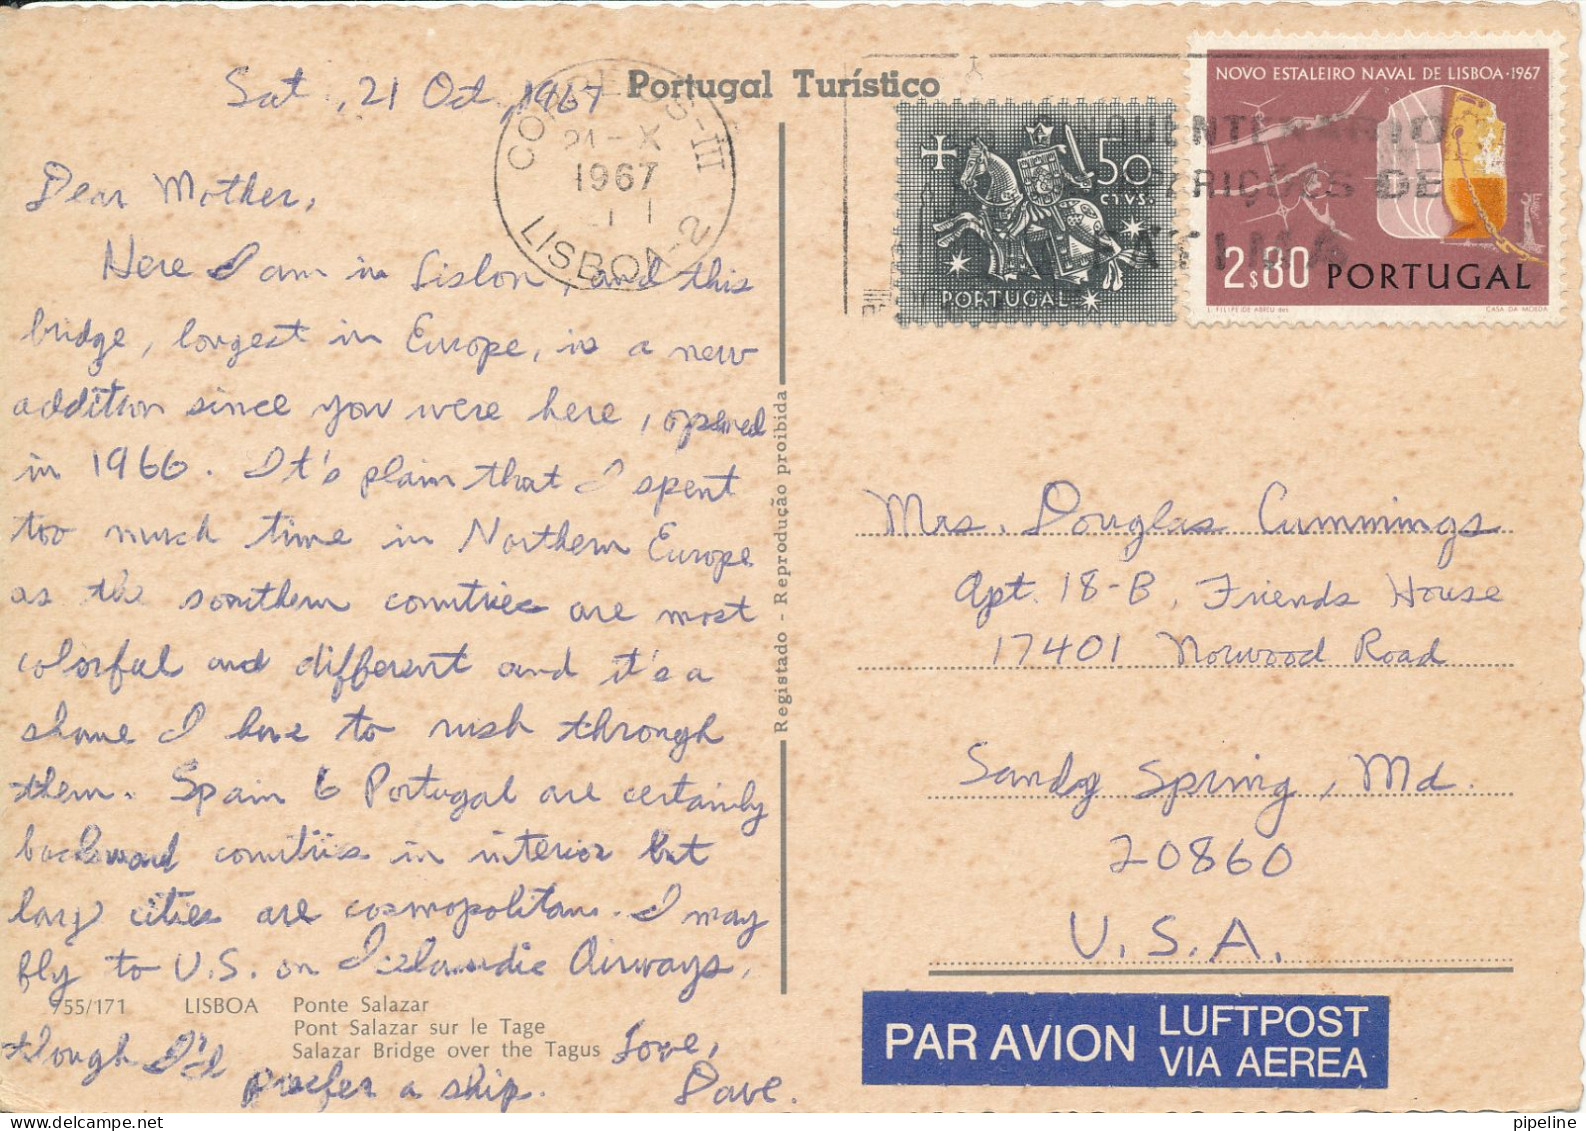 Portugal Turístico
Sat., 21 Oct, 1967
Dear Mother,
Here I am in Lisbon, and this
bridge, longest in Europe, is a new
addition since you were here, opened
in 1966. It's plain that I spent
too much time in Northern Europe
as the southern countries are most
colorful and different and it's a
shame I have to rush through
them. Spain & Portugal are certainly
backward countries in interior but
large cities are cosmopolitan. I may
fly to U.S. on Icelandic Airways,
though I'd
prefer a ship.
Love,
Dave.
755/171 LISBOA Ponte Salazar
Pont Salazar sur le Tage
Salazar Bridge over the Tagus
Registado - Reprodução proibida
CORREIOS-III
21-X
1967
LISBOA-2
CINQUENTENARIO
DE
FATIMA
50
CTVS.
PORTUGAL
NOVO ESTALEIRO NAVAL DE LISBOA·1967
2$80 PORTUGAL
J. FILIPE DE ABREU des. CASA DA MOEDA
Mrs. Douglas Cummings
Apt. 18-B, Friends House
17401 Norwood Road
Sandy Spring, Md.
20860
U.S.A.
PAR AVION
LUFTPOST
VIA AEREA
pipeline